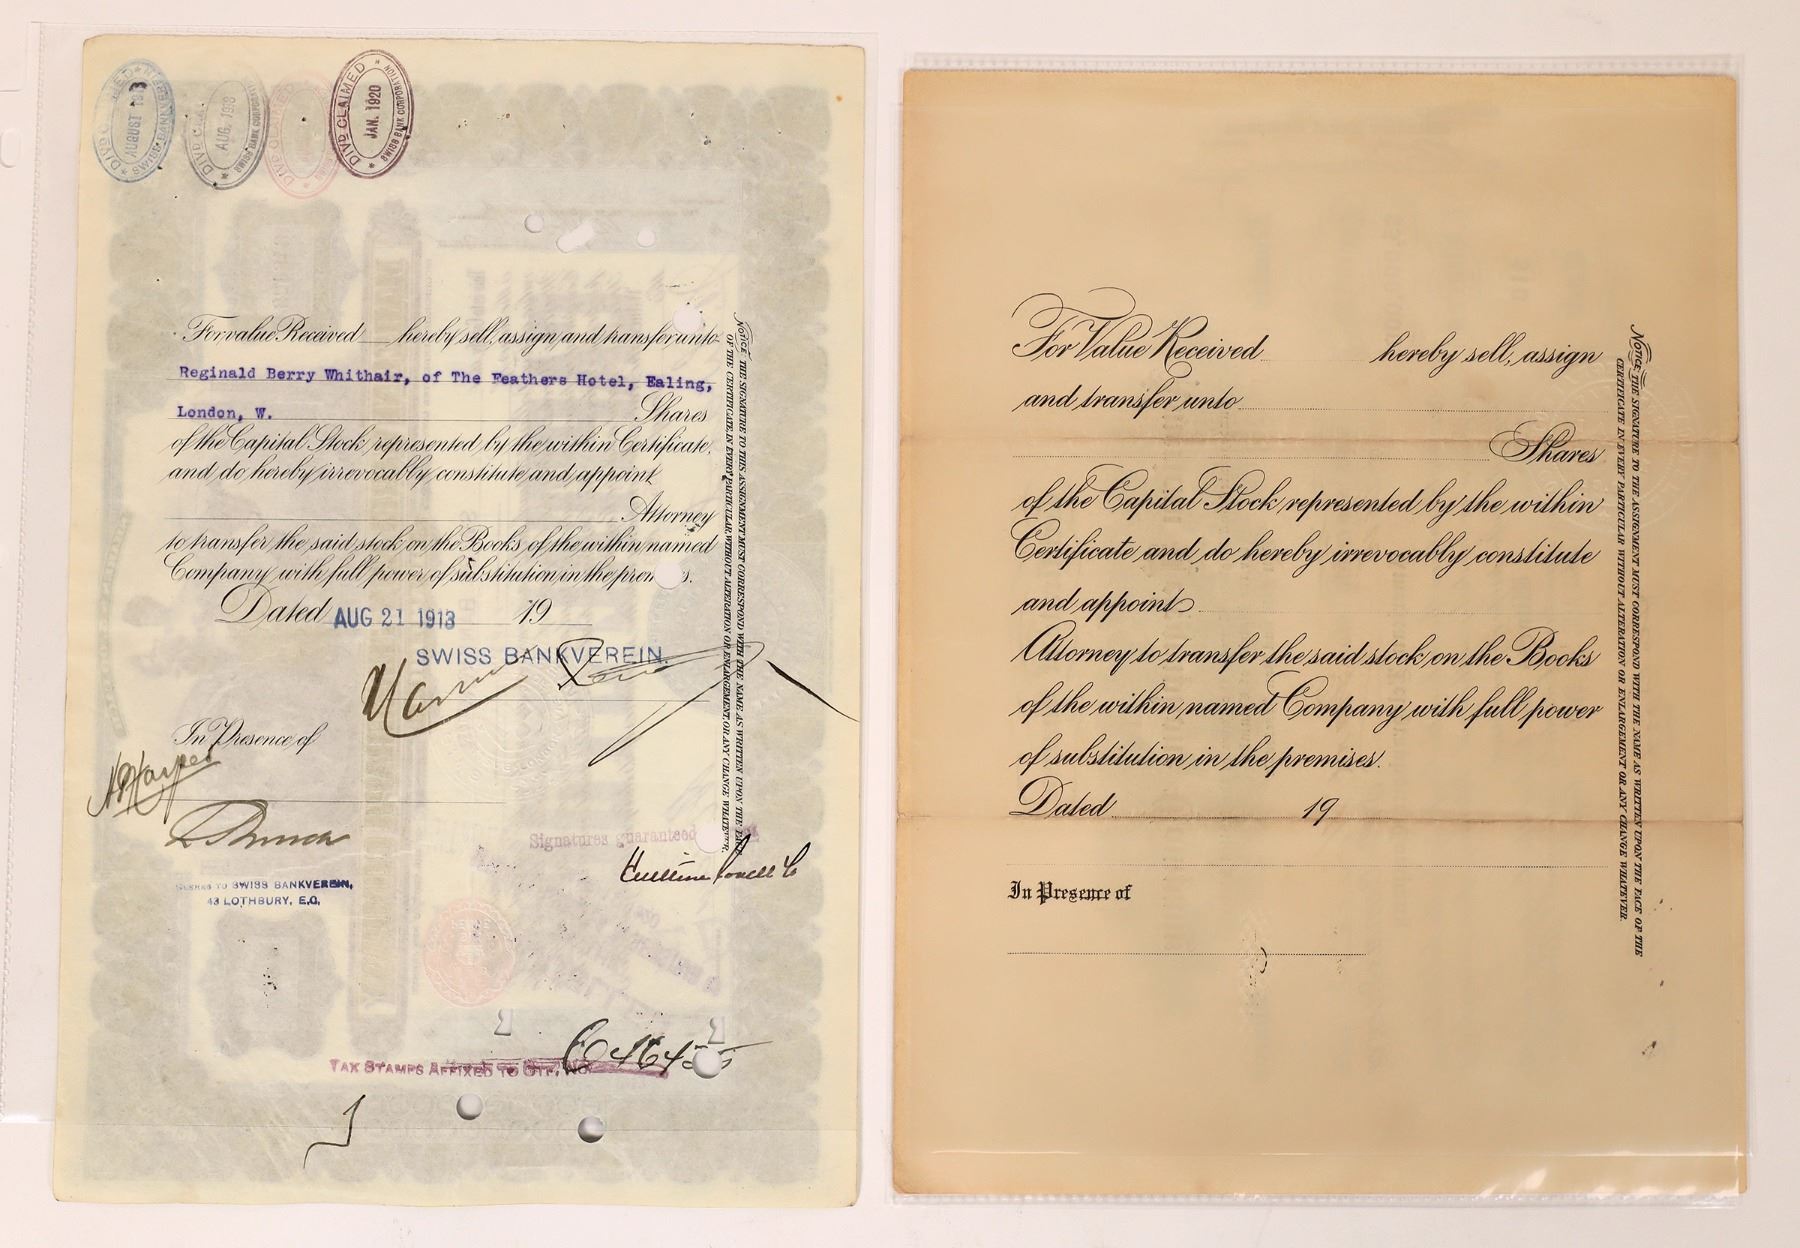 DIVD CLAIMED
JAN. 1920
SWISS BANK CORPORATION
AUG. 1918
SWISS BANK CORPORATION
AUGUST
SWISS BANKVEREIN
For value Received hereby sell, assign and transfer unto
Reginald Berry Whithair, of The Feathers Hotel, Ealing,
London, W. Shares
of the Capital Stock represented by the within Certificate,
and do hereby irrevocably constitute and appoint
Attorney
to transfer the said stock on the Books of the within named
Company with full power of substitution in the premises.
Dated AUG 21 1913 19
SWISS BANKVEREIN.
In Presence of
TO SWISS BANKVEREIN,
43 LOTHBURY, E.C,
Signatures guaranteed
TAX STAMPS AFFIXED TO CTF. NO.
NOTICE. THE SIGNATURE TO THIS ASSIGNMENT MUST CORRESPOND WITH THE NAME AS WRITTEN UPON THE FACE
OF THE CERTIFICATE, IN EVERY PARTICULAR WITHOUT ALTERATION OR ENLARGEMENT OR ANY CHANGE WHATEVER.
For Value Received hereby sell, assign
and transfer unto
Shares
of the Capital Stock represented by the within
Certificate and do hereby irrevocably constitute
and appoint
Attorney to transfer the said stock on the Books
of the within named Company with full power
of substitution in the premises.
Dated 19
In Presence of
NOTICE. THE SIGNATURE TO THE ASSIGNMENT MUST CORRESPOND WITH THE NAME AS WRITTEN UPON THE FACE OF THE
CERTIFICATE IN EVERY PARTICULAR WITHOUT ALTERATION OR ENLARGEMENT OR ANY CHANGE WHATEVER.